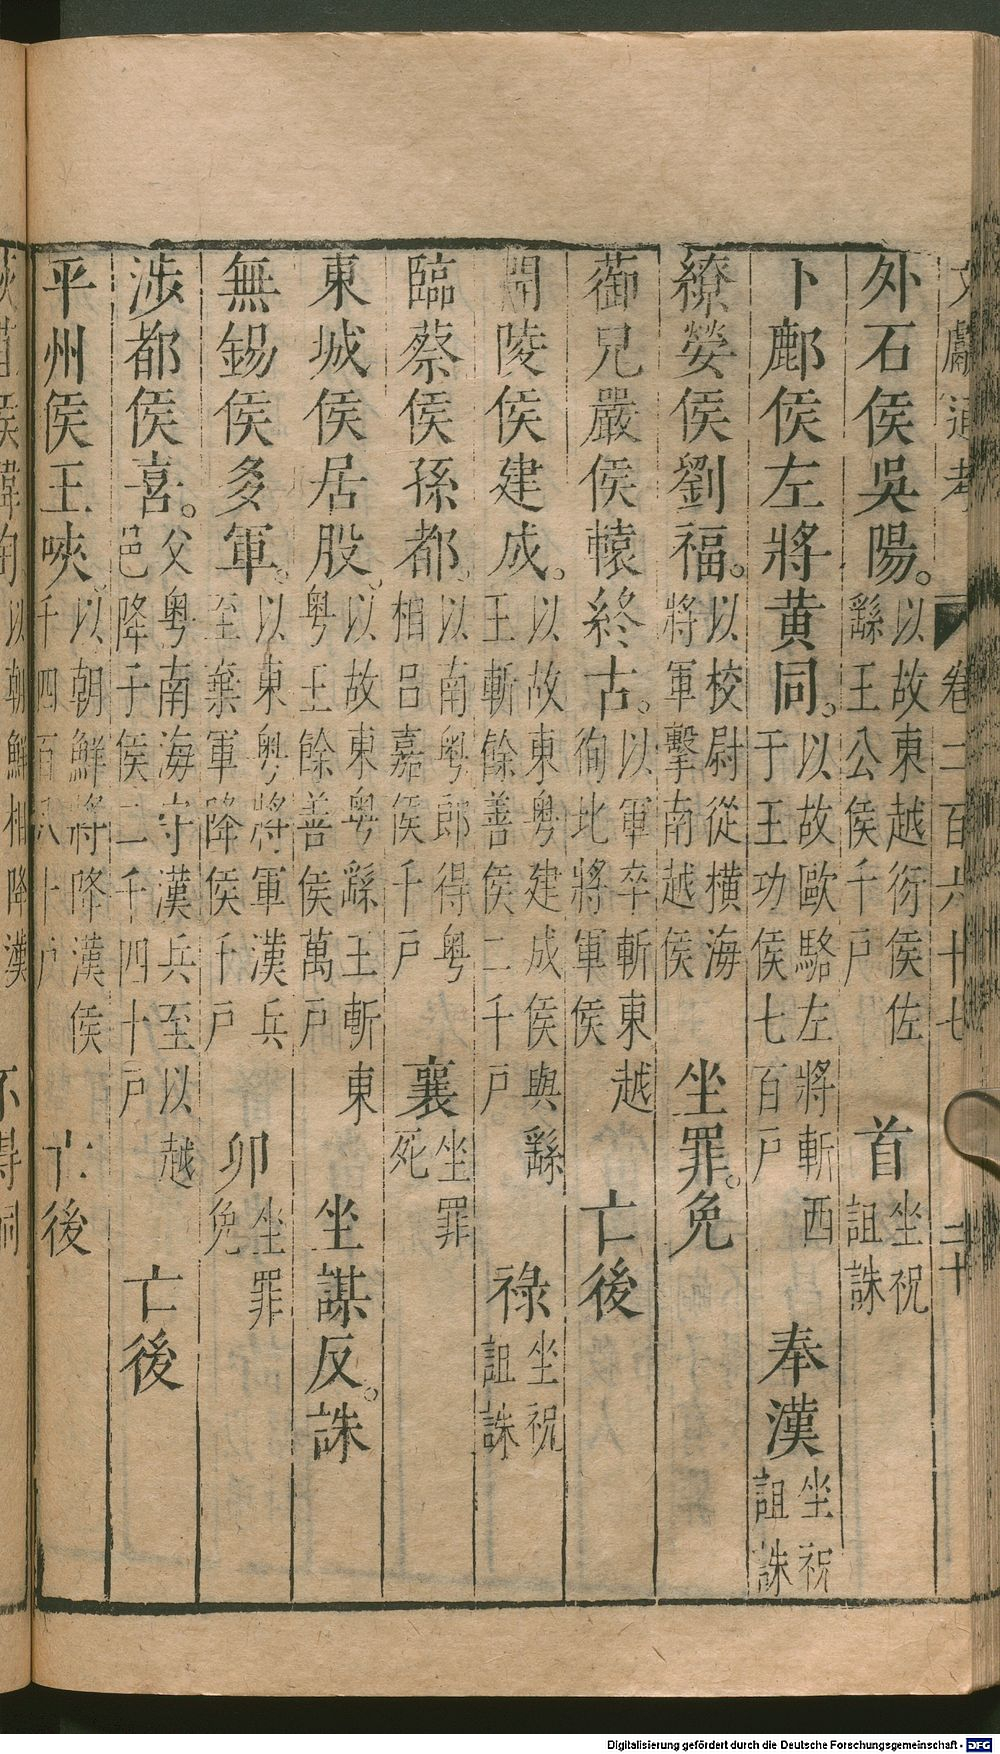 文獻通考 卷二百六十七 二十
外石侯吳陽。以故東越衍侯佐繇王公侯千戶 首坐祝詛誅
卜鄜侯左將黃同。以故歐駱左將斬西于王功侯七百戶 奉漢坐祝詛誅
繚嫈侯劉福。以校尉從橫海將軍擊南越侯 坐罪。免
蓹兒嚴侯轅終古。以軍卒斬東越徇北將軍侯 亡後
開陵侯建成。以故東粵建成侯與繇王斬餘善侯二千戶 祿坐祝詛誅
臨蔡侯孫都。以南粵郎得粵相呂嘉侯千戶 襄坐罪死
東城侯居股。以故東粵繇王斬東粵王餘善侯萬戶 坐謀反。誅
無錫侯多軍。以東粵將軍漢兵至棄軍降侯千戶 卯坐罪免
涉都侯喜。父粵南海守漢兵至以越邑降子侯二千四十戶 亡後
平州侯王唊。以朝鮮將降漢侯千四百八十戶 亡後
以朝鮮相降漢
Digitalisierung gefördert durch die Deutsche Forschungsgemeinschaft - DFG